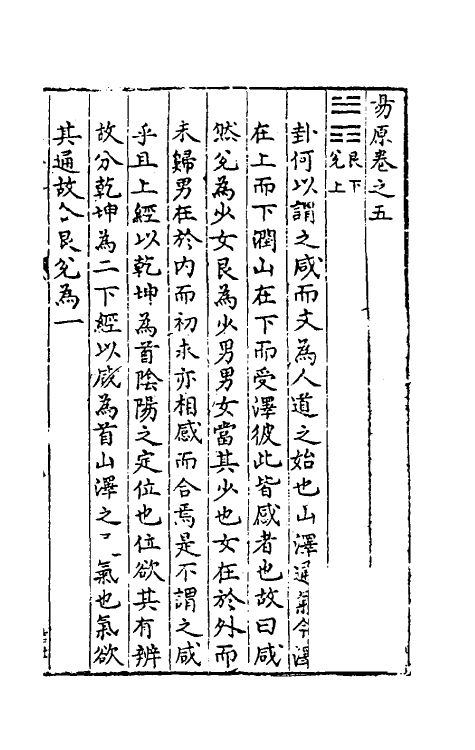 昜原卷之五
艮下
兌上
卦何以謂之咸而文為人道之始也山澤通氣今澤
在上而下潤山在下而受澤彼此皆感者也故曰咸
然兌為少女艮為少男男女當其少也女在於外而
未歸男在於內而初求亦相感而合焉是不謂之咸
乎且上經以乾坤為首陰陽之定位也位欲其有辨
故分乾坤為二下經以咸為首山澤之氣也氣欲
其通故合艮兌為一